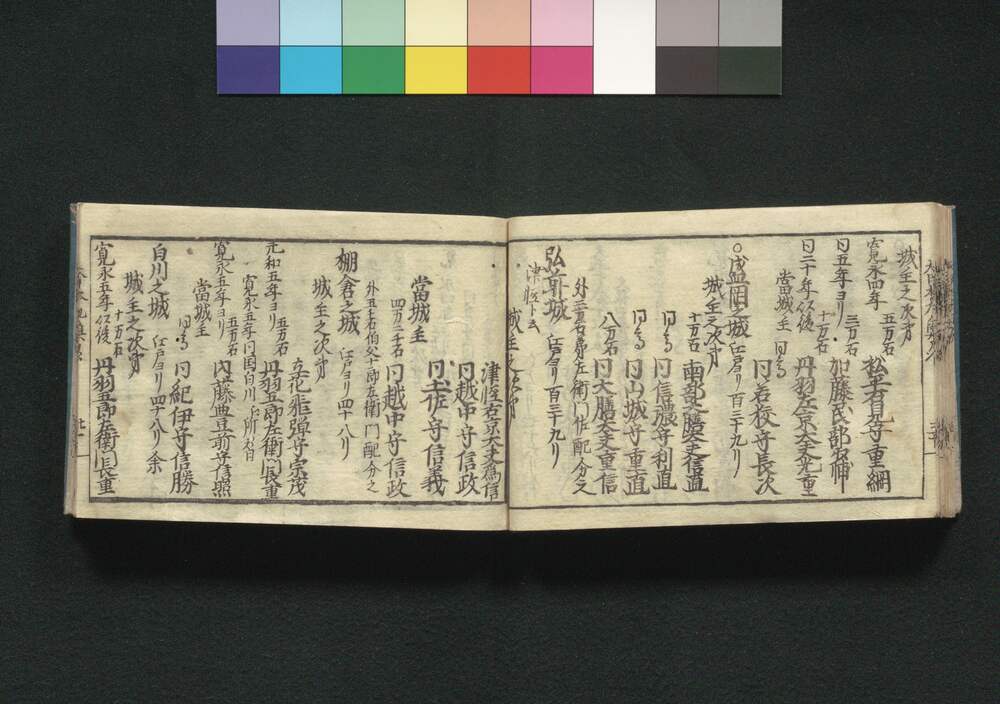 城主之次第
寛永四年 五万石 松平石見守重綱
同五年ヨリ 三万石 加藤民部少輔
同二十年以後 十万石 丹羽左京大夫光重
當城主 同る
同若狭守長次
○盛岡之城 江戸ヨリ百三十九り
城主之次第
十万石 南部大膳大夫信直
同る 同信濃守利直
同る 同山城守重直
八万石 同大膳大夫重信
外二万石弟左衛門作配分之
弘前城 江戸ヨリ百三十九り
津恆ト云
城主之次第
津恆右京大夫為信
同越中守信政
同土佐守信義
四万二千石 同越中守信政
當城主
外五千石伯父十郎左衛門配分之
棚倉之城 江戸ヨリ四十八り
城主之次第
立花飛弾守宗茂
元和五年ヨリ 五万石 丹羽五郎左衛門長重
寛永五年同国白川ノ所替
寛永五年ヨリ 五万石 内藤豊前守信照
當城主
同る 同紀伊守信勝
白川之城 江戸ヨリ四十八り余
城主之次第
寛永五年以後 十万石 丹羽五郎左衛門長重